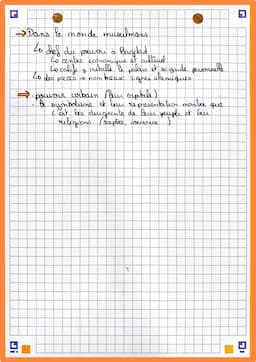 → Dans le monde musulmans
↳ chef du pouvoir à Bagdad
↳ centre économique et culturel
↳ calife y installe le palais et sa garde personnelle
↳ des pièces → nombreux signes islamiques
→ pouvoir urbain (leur capitale)
- le symbolisme et leur représentation montre que
c'est les dirigeants de leur peuple et leur
religions (sceptre, couronne)